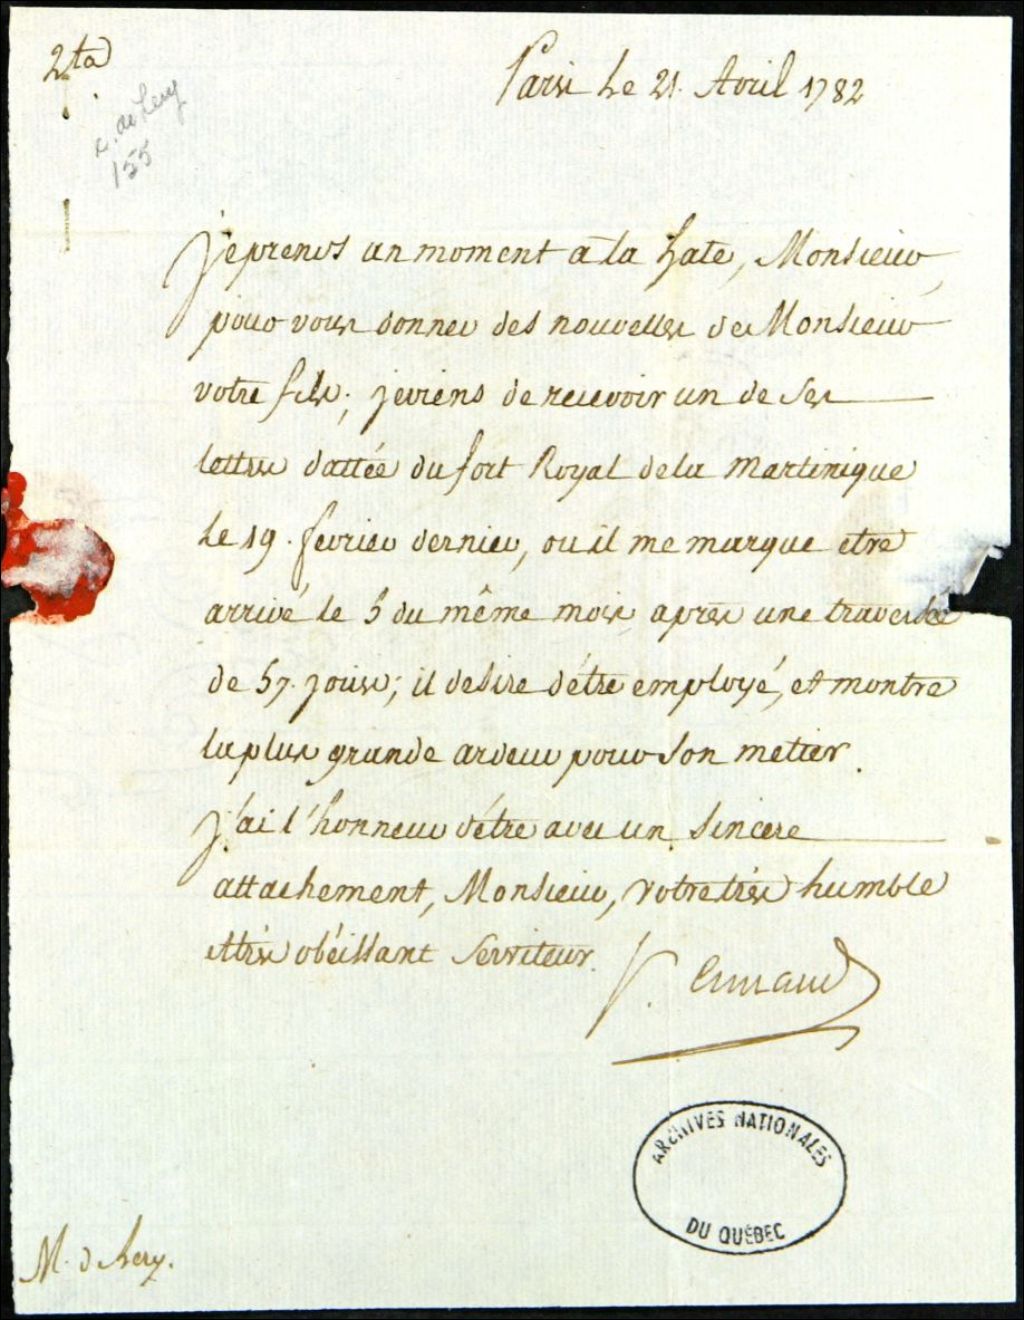 2ta
Paris Le 21. Avril 1782
de Lery
155
je prends un moment à la hate, Monsieur,
pour vous donner des nouvelles de Monsieur
votre fils; je viens de recevoir un de ses
lettres dattée du fort Royal de la Martinique
Le 19. fevrier dernier, ou il me marque etre
arrivé le 5 du même mois après une traversée
de 57. jours; il desire d'être employé, et montre
la plus grande ardeur pour son metier.
J'ai l'honneur d'être avec un sincere
attachement, Monsieur, votre très humble
et très obéissant serviteur.
M. de Lery.
ARCHIVES NATIONALES
DU QUÉBEC